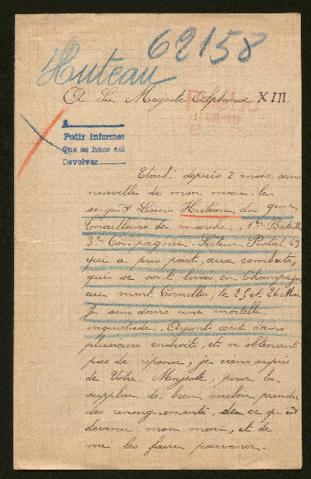 62158
Huteau
A Sa Majesté Alphonse XIII
A
Pedir informes
Que se hace así
Devolver
Etant depuis 2 mois sans
nouvelle de mon mari le
sergent Louis Huteau du
Tirailleurs de marche, 1er Bataillon
3e Compagnie. Secteur Postal 49
qui a pris part, aux combats,
qui se sont livrés en Champagne
au mont Cornillet, le 25 et 26 Mai
Je suis dans une mortelle
inquiétude. Ayant écrit dans
plusieurs endroits, et n'obtenant
pas de réponse, je viens auprès
de Votre Majesté, pour la
supplier de bien vouloir prendre
des renseignements, de ce qu'est
devenu mon mari, et de
me les faire parvenir.